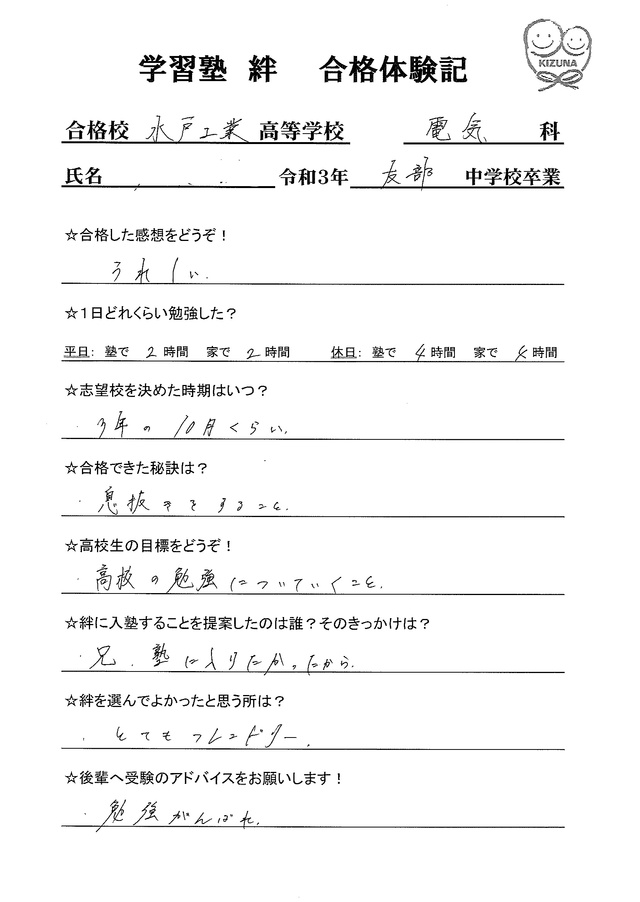 学習塾 絆 合格体験記
KIZUNA
合格校 水戸工業 高等学校 電気 科
氏名 令和3年 友部 中学校卒業
☆合格した感想をどうぞ！
うれしい.
☆1日どれくらい勉強した？
平日: 塾で 2 時間 家で 2 時間 休日: 塾で 4 時間 家で 4 時間
☆志望校を決めた時期はいつ？
・3年の10月くらい.
☆合格できた秘訣は？
・息抜きをすること.
☆高校生の目標をどうぞ！
・高校の勉強についていくこと.
☆絆に入塾することを提案したのは誰？そのきっかけは？
・兄. 塾に入りたかったから.
☆絆を選んでよかったと思う所は？
・とてもフレンドリー.
☆後輩へ受験のアドバイスをお願いします！
・勉強がんばれ.